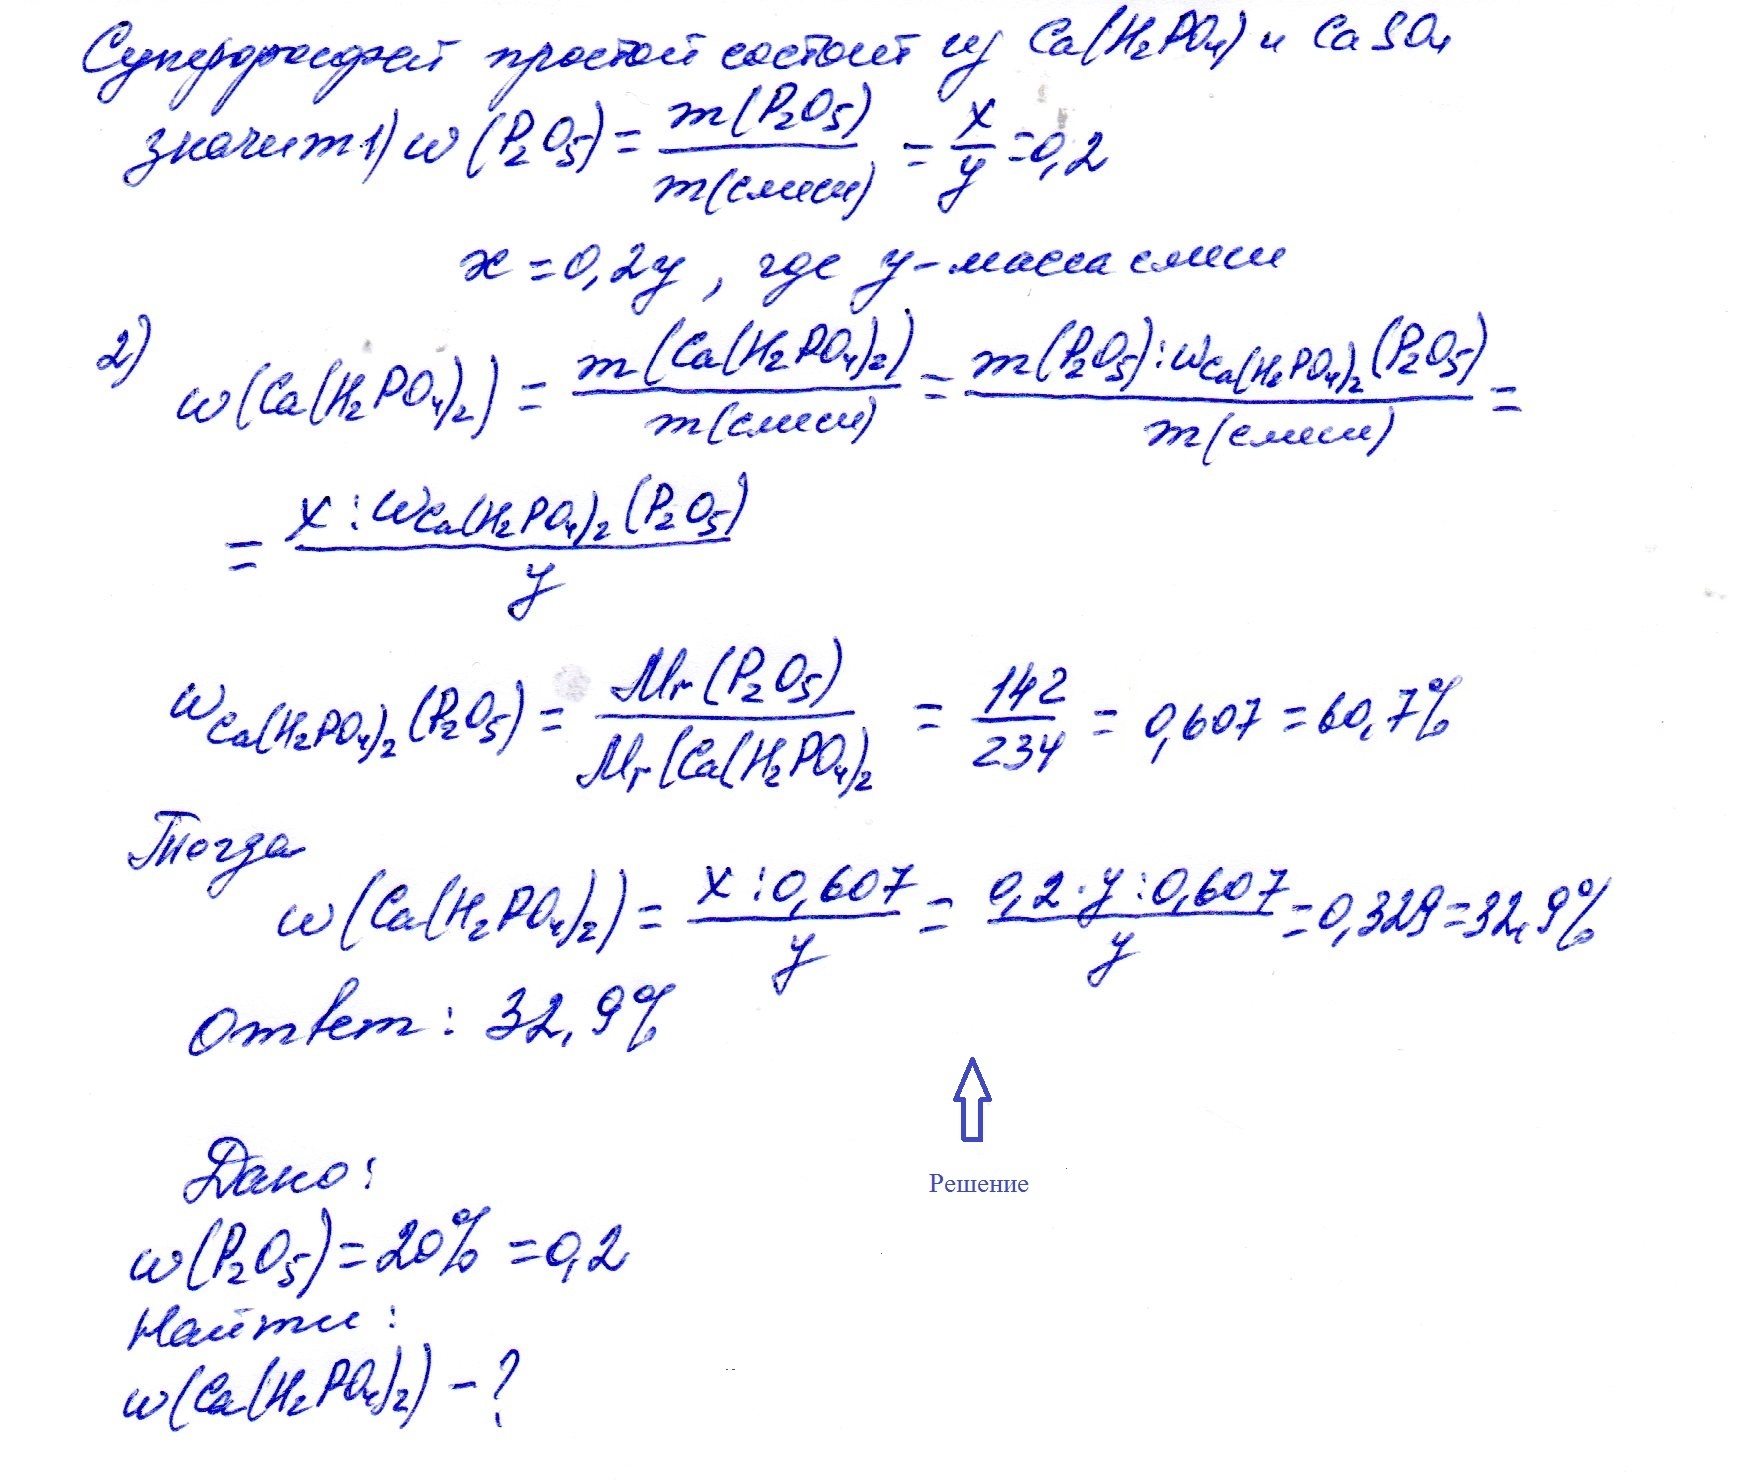 Суперфосфат простой состоит из Ca(H₂PO₄) и CaSO₄
значит 1) w(P₂O₅) = m(P₂O₅) / m(смеси) = x / y = 0,2
x = 0,2y, где y - масса смеси
2) w(Ca(H₂PO₄)₂) = m(Ca(H₂PO₄)₂) / m(смеси) = m(P₂O₅) : w Ca(H₂PO₄)₂ (P₂O₅) / m(смеси) =
= x : w Ca(H₂PO₄)₂ (P₂O₅) / y
w Ca(H₂PO₄)₂ (P₂O₅) = Mr(P₂O₅) / Mr(Ca(H₂PO₄)₂ = 142 / 234 = 0,607 = 60,7%
Тогда
w(Ca(H₂PO₄)₂) = x : 0,607 / y = 0,2 · y : 0,607 / y = 0,329 = 32,9%
Ответ: 32,9%
Решение
Дано:
w(P₂O₅) = 20% = 0,2
Найти:
w(Ca(H₂PO₄)₂) - ?